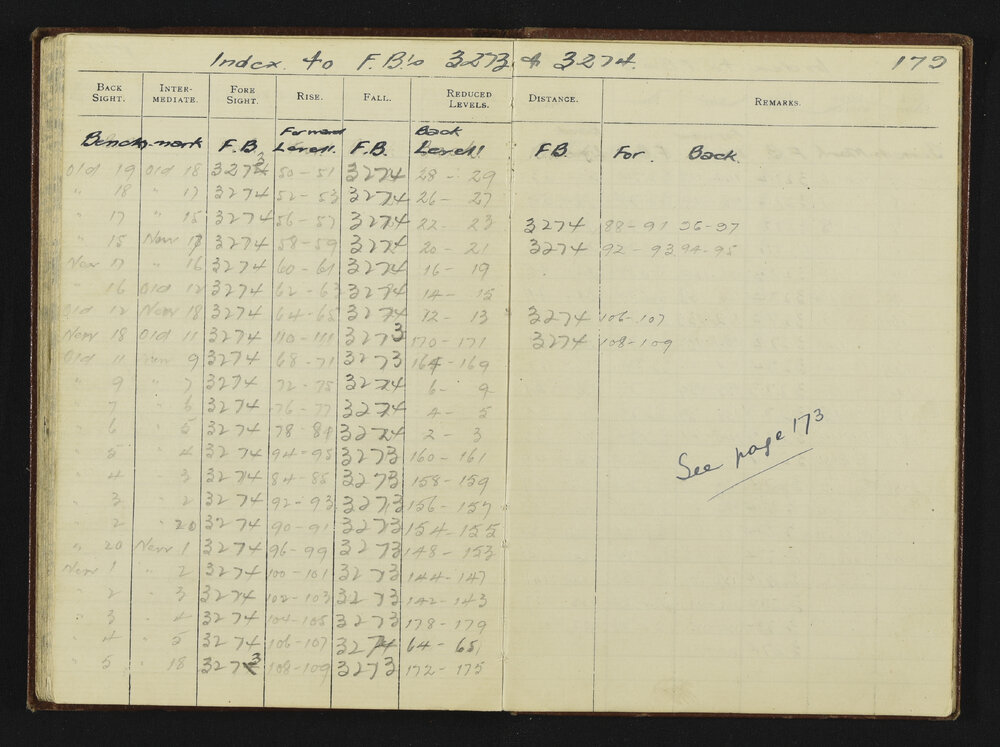 Index to F.B's 3273 & 3274. 179
BACK SIGHT. INTER-MEDIATE. FORE SIGHT. RISE. FALL. REDUCED LEVELS. DISTANCE. REMARKS.
Bench-mark F.B. Forward Levell. F.B. Back Levell FB For. Back.
Old 19 Old 18 3273 50-51 3274 28-29
" 18 " 17 3274 52-53 3274 26-27
" 17 " 15 3274 56-57 3274 22-23 3274 88-91 96-97
" 15 New 17 3274 58-59 3274 20-21 3274 92-93 94-95
New 17 " 16 3274 60-61 3274 16-19
" 16 Old 12 3274 62-63 3274 14-15
Old 12 New 18 3274 64-65 3274 12-13 3274 106-107
New 18 Old 11 3274 110-111 3273 170-171 3274 108-109
Old 11 9 3274 68-71 3273 164-169
" 9 " 7 3274 72-75 3274 6-9
" 7 " 6 3274 76-77 3274 4-5
" 6 " 5 3274 78-81 3274 2-3
" 5 " 4 3274 94-95 3273 160-161
" 4 " 3 3274 84-85 3273 158-159
" 3 " 2 3274 92-93 3273 156-157
" 2 " 20 3274 90-91 3273 154-155
" 20 New 1 3274 96-99 3273 148-153
New 1 " 2 3274 100-101 3273 144-147
" 2 " 3 3274 102-103 3273 142-143
" 3 " 4 3274 104-105 3273 178-179
" 4 " 5 3274 106-107 3274 64-65
" 5 " 18 3273 108-109 3273 172-175
See page 173